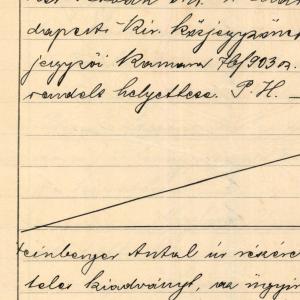 dapesti Kir. közjegyzői
jegyzői kamara 76/903 sz.
rendelt helyettese. P. H. —
Steinberger Antal úr részére
teles kiadványt, az ügyir